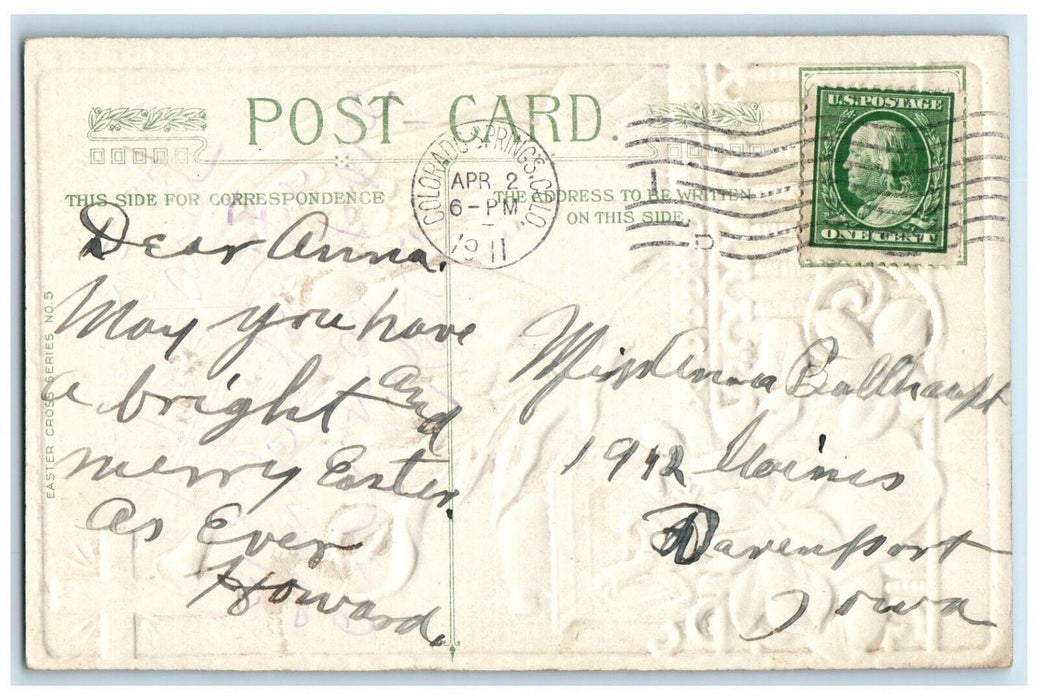 POST CARD.
THIS SIDE FOR CORRESPONDENCE
THE ADDRESS TO BE WRITTEN
ON THIS SIDE.
COLORADO SPRINGS, COLO.
APR 2
6-PM
1911
U.S. POSTAGE
ONE CENT
EASTER CROSS SERIES NO. 5
Dear Anna.
May you have
a bright and
merry Easter.
As Ever
Howard.
Miss Anna Ballhaupt
1942
Davenport
Iowa